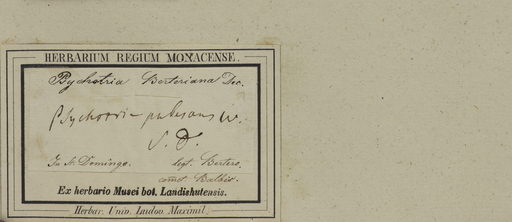 HERBARIUM REGIUM MONACENSE.
Psychotria Berteriana Dec.
Psychotria pubesans W.
S. D.
In St. Domingo. legt. Bertero.
com̄. Balbis.
Ex herbario Musei bot. Landishutensis.
Herbar. Univ. Ludov. Maximil.